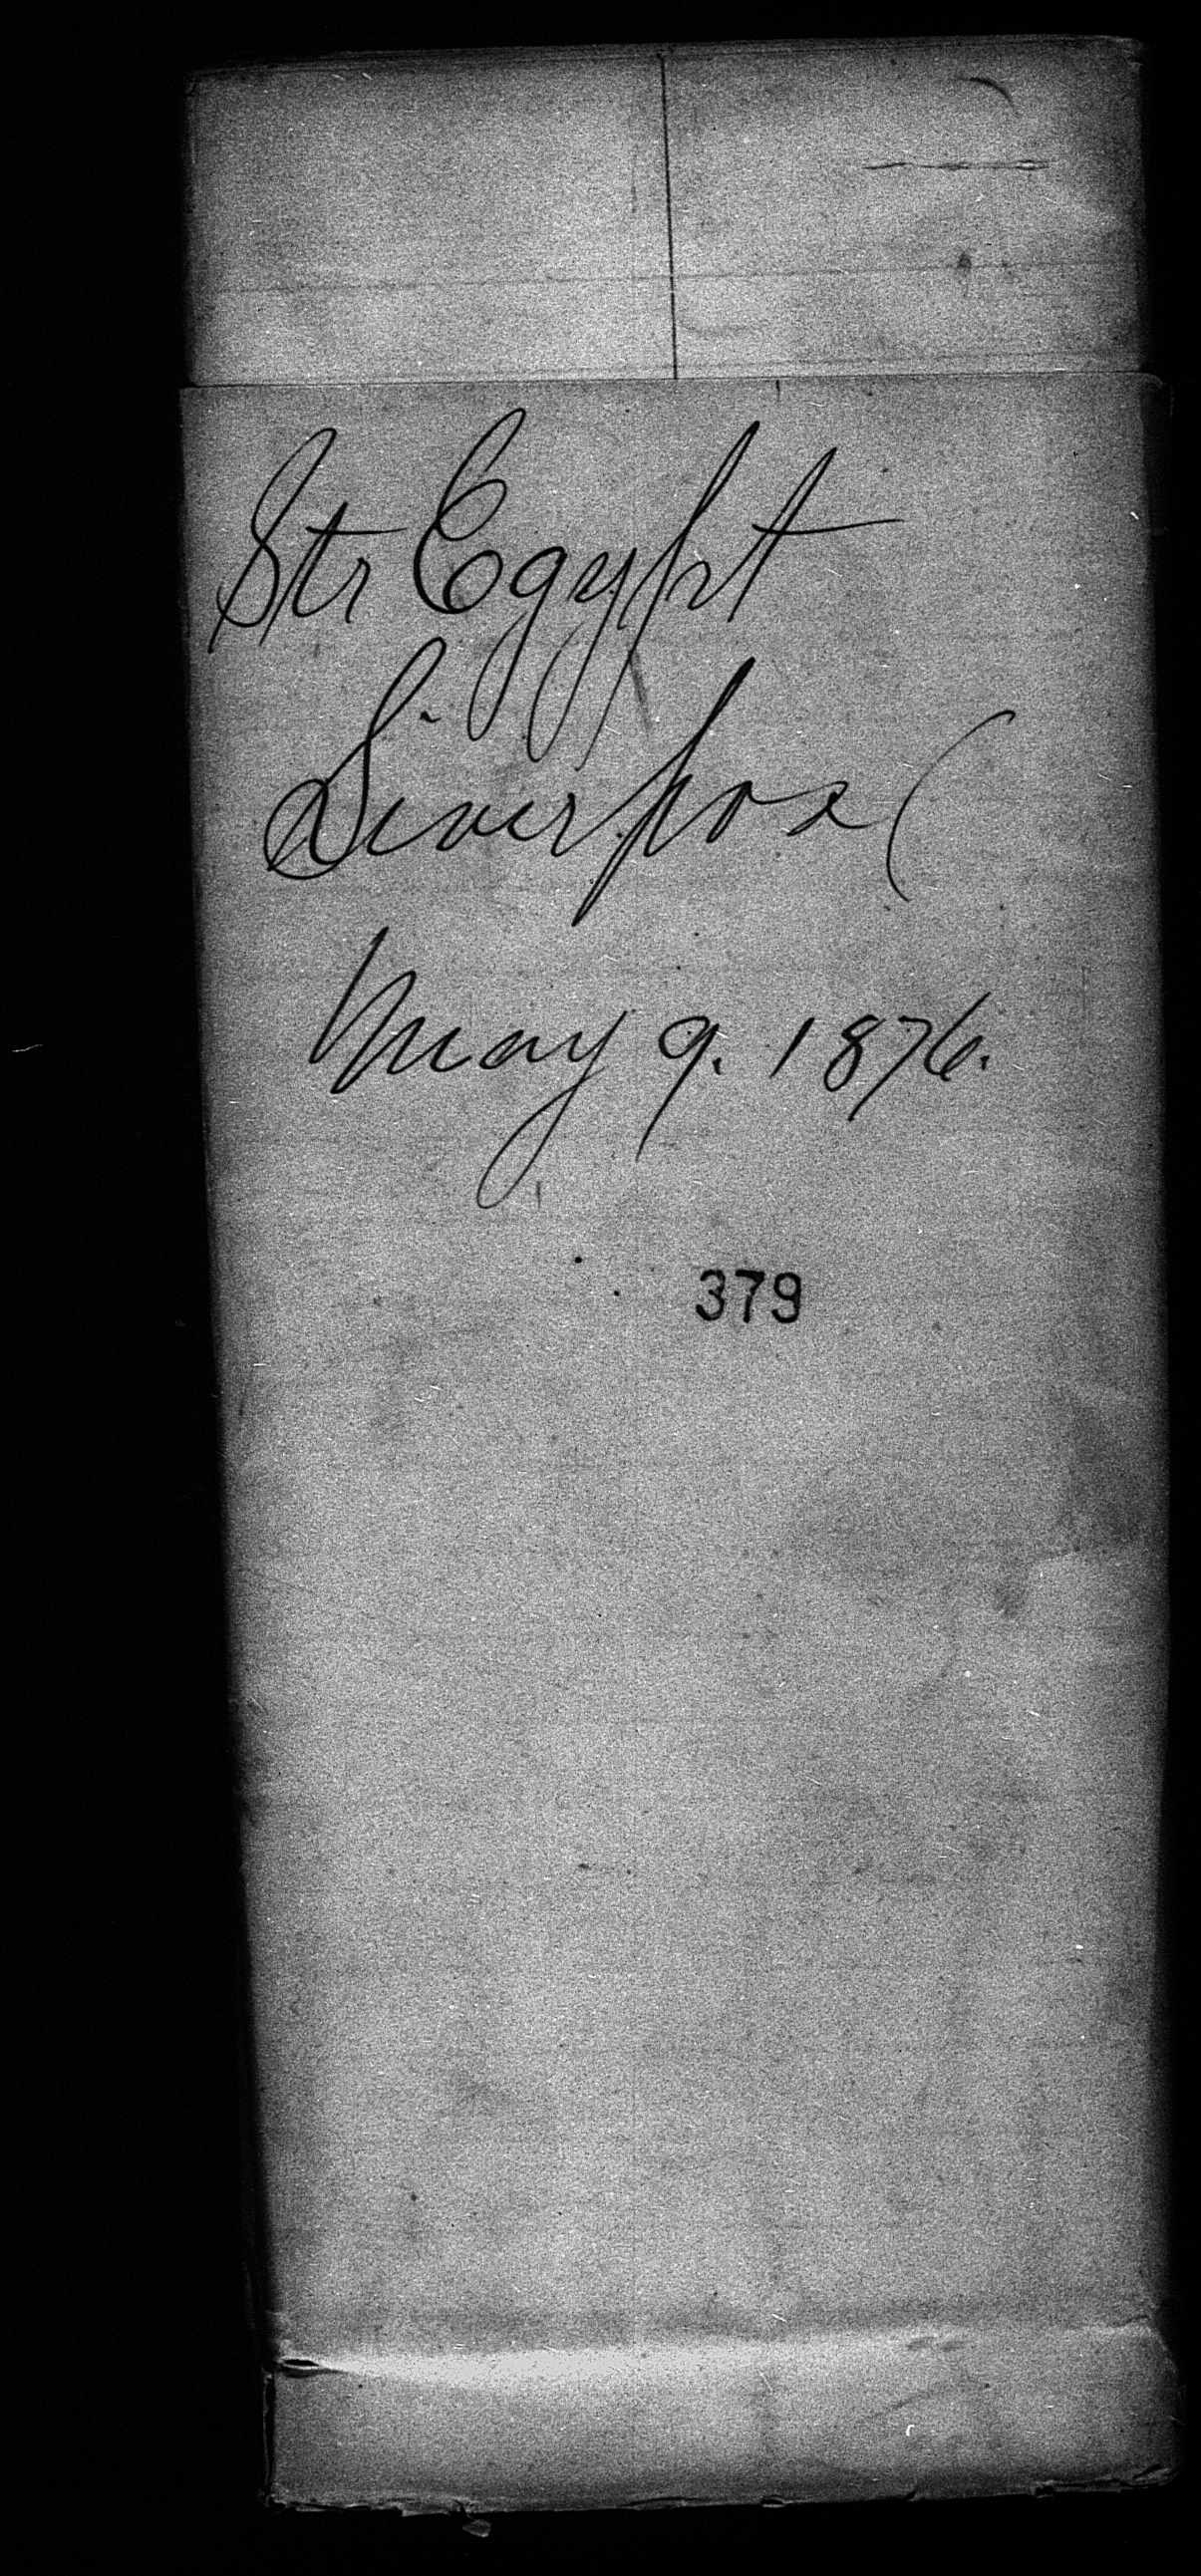 Str Egypt
Liverpool
May 9. 1876.
379